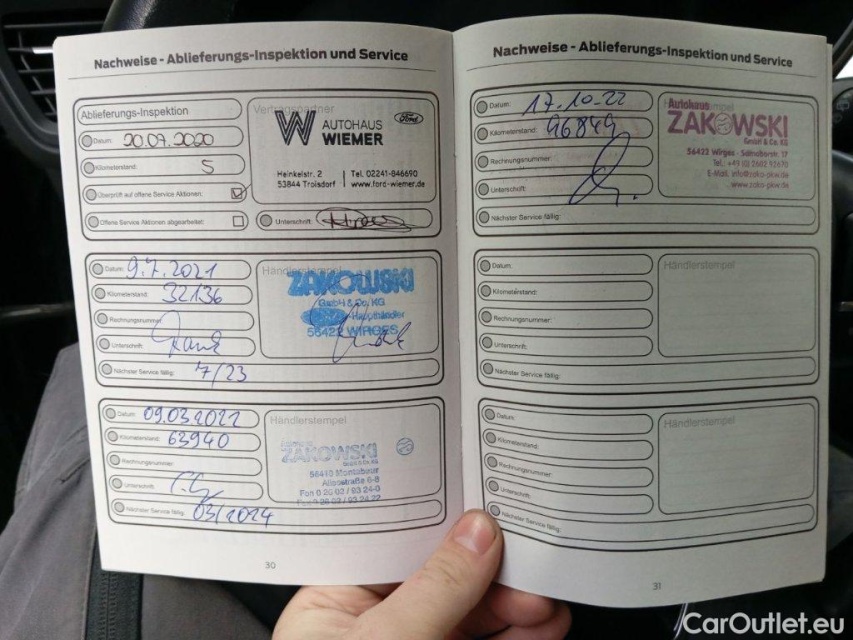 Nachweise - Ablieferungs-Inspektion und Service
Ablieferungs-Inspektion
Datum: 20.07.2020
Kilometerstand: 5
Überprüft auf offene Service Aktionen:
Offene Service Aktionen abgearbeitet:
Vertragspartner
W AUTOHAUS WIEMER
Ford
Heinkelstr. 2
53844 Troisdorf
Tel. 02241-846690
www.ford-wiemer.de
Unterschrift:
Datum: 9.7.2021
Kilometerstand: 32136
Rechnungsnummer:
Unterschrift:
Nächster Service fällig: 7/23
Händlerstempel
ZAKOWSKI
GmbH & Co. KG
Haupthändler
56422 WIRGES
Datum: 09.03.2022
Kilometerstand: 63940
Rechnungsnummer:
Unterschrift:
Nächster Service fällig: 03/2024
Händlerstempel
ZAKOWSKI
56410 Montabaur
Alleestraße 6-8
Fon 0 26 02 / 93 24-0
Fax 0 26 02 / 93 24 22
30
Nachweise - Ablieferungs-Inspektion und Service
Datum: 17.10.22
Kilometerstand: 96849
Rechnungsnummer:
Unterschrift:
Nächster Service fällig:
Autohaus
ZAKOWSKI
GmbH & Co. KG
56422 Wirges - Samoborstr. 17
Tel.: +49 (0) 2602 92670
E-Mail. info@zako-pkw.de
www.zako-pkw.de
Datum:
Kilometerstand:
Rechnungsnummer:
Unterschrift:
Nächster Service fällig:
Händlerstempel
Datum:
Kilometerstand:
Rechnungsnummer:
Unterschrift:
Nächster Service fällig:
Händlerstempel
31
CarOutlet.eu